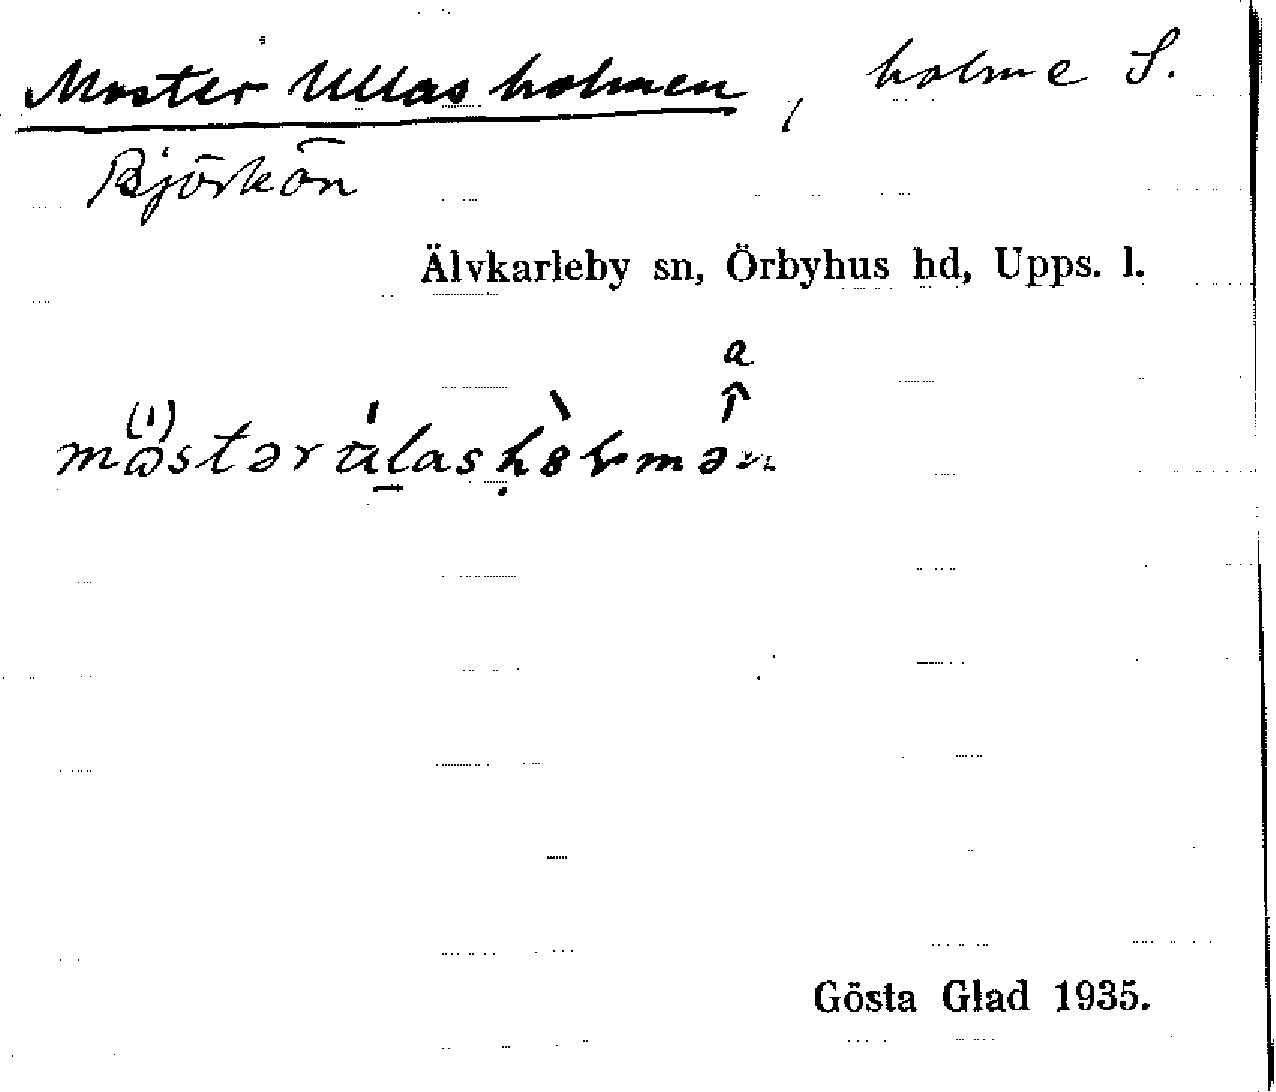 Moster Ullas holmen, holme S.
Björkön
Älvkarleby sn, Örbyhus hd, Upps. l.
a
Gösta Glad 1935.